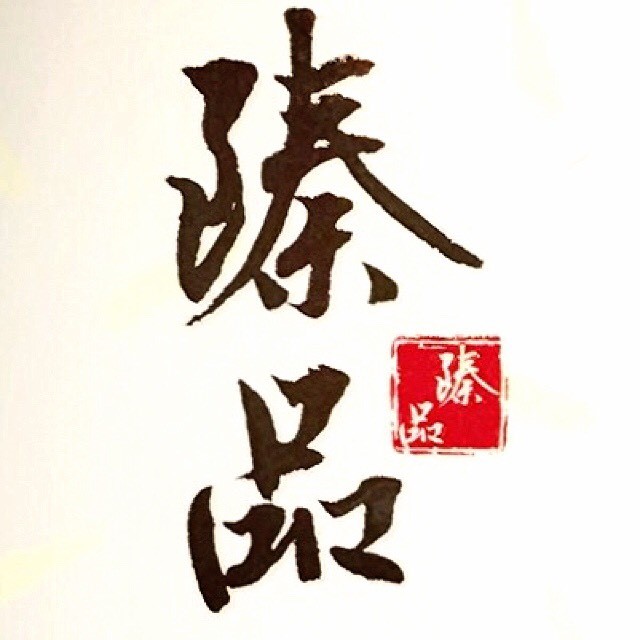 臻
品
臻
品